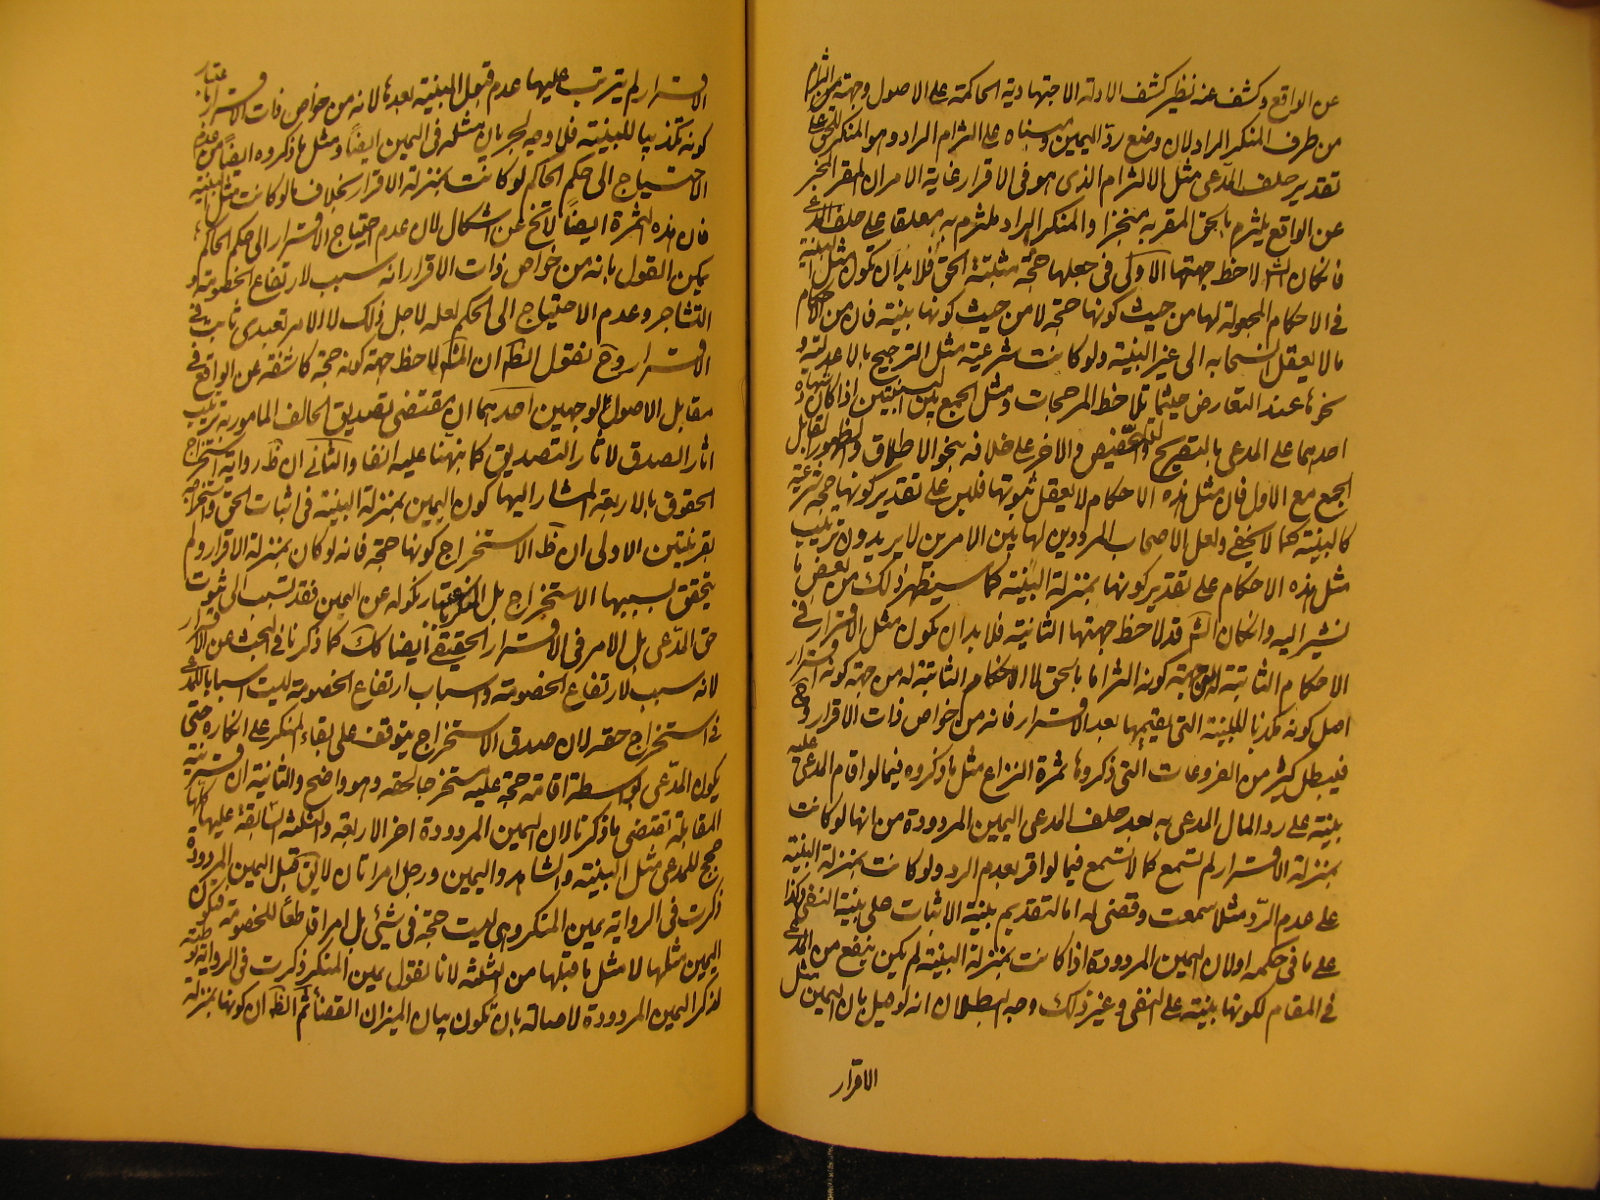 عن الواقع وكشف عنه نظير كشف الادلة الاجتهادية الحاكمة على الاصول وجهة التزام
من طرف المنكر الراد لان وضع ردّ اليمين ومبناه على التزام الراد وهو المنكر للحق على
تقدير حلف المدعى مثل الالتزام الذى هو فى الاقرار غاية الامر ان المقر المخبر
عن الواقع يلتزم بالحق المقر به منجزا والمنكر الراد ملتزم به معلقا على حلف المدعى
فانكان الش لاحظ جهتها الاولى فى جعلها حجّة مثبتة الحق فلا بد ان تكون مثل البينة
فى الاحكام المجعولة لها من حيث كونها حجة لا من حيث كونها بينة فان من الاحكام
ما لا يعقل انسحابه الى غير البينة ولو كانت شرعية مثل الترجيح بالاعدلية و
نحوها عند التعارض حيثما تلاحظ المرجحات ومثل الجمع بين البينتين اذا كان شهادة
احدهما على المدعى بالتصريح والتخصيص والاخر على خلافه بنحو الاطلاق والظهور القابل
الجمع مع الاول فان مثل هذه الاحكام لا يعقل ثبوتها فليس على تقدير كونها حجة شرعية
كالبينة كما لا يخفى ولعل الاصحاب المرددين لها بين الامرين لا يريدون ترتيب
مثل هذه الاحكام على تقدير كونها بمنزلة البينة كما سيظهر ذلك من بعض ما
نشير اليه وانكان الش قد لاحظ جهتها الثانية فلا بد ان يكون مثل الاقرار فى
الاحكام الثابتة له من جهة كونه التزاما بالحق لا الاحكام الثابتة له من جهة كونه اقرار
اصل كونه مكذبا للبينة التى يقيمها بعد الاقرار فانه من خواص ذات الاقرار وح
فيبطل كثير من الفروعات التى ذكروها ثمرة النزاع مثل ما ذكروه فيما لو اقام المدعى عليه
بينة على رد المال المدعى به بعد حلف المدعى اليمين المردودة من انها لو كانت
بمنزلة الاقرار لم تسمع كما لا تسمع فيما لو اقر بعدم الرد ولو كانت بمنزلة البينة
على عدم الردّ مثلا سمعت وقضى له اما لتقديم بينة الاثبات على بينة النفى وكذا
على ما فى حكمه اولان اليمين المردودة اذا كانت بمنزلة البينة لم يكن ينفع من المدعى
فى المقام لكونها بينة على النفى وغير ذلك وجه البطلان انه لو قيل بان اليمين مثل
الاقرار
الاقرار لم يترتب عليها عدم قبول البينة بعدها لانه من خواص ذات الاقرار باعتبار
كونه تكذيبا للبينة فلا وجه لجريان مثله فى اليمين ايضاً ومثل ما ذكروه ايضاً من عدم
الاحتياج الى حكم الحاكم لو كانت بمنزلة الاقرار بخلاف ما لو كانت مثل البينة
فان هذه الثمرة ايضاً لا تخ عن اشكال لان عدم احتياج الاقرار الى حكم الحاكم
يمكن القول بانه من خواص ذات الاقرار انه سبب لارتفاع الخصومة و
التشاجر وعدم الاحتياج الى الحكم لعله لاجل ذلك لا لامر تعبدى ثابت فى
الاقرار وح نقول الظ ان الش لاحظ جهة كونه حجة كاشفة عن الواقع فى
مقابل الاصول لوجهين احدهما ان مقتضى تصديق الحالف المامور به ترتيب
اثار الصدق لا آثار التصديق كما نبهنا عليه انفا والثانى ان ظ رواية استخراج
الحقوق بالاربعة المشار اليها كون اليمين بمنزلة البينة فى اثبات الحق واستخراجه
بقرينتين الاولى ان ظ الاستخراج كونها حجة فانه لو كان بمنزلة الاقرار ولم
يتحقق بسببها الاستخراج بل باعتبار نكوله عن اليمين فقد تسبب الى ثبوت
حق المدّعى بل الامر فى الاقرار الحقيقى ايضا كك كما ذكرنا فى البحث عن الاقرار
لانه سبب لارتفاع الخصومة واسباب ارتفاع الخصومة ليست اسبابا للمدعى
فى استخراج حقه لان صدق الاستخراج يتوقف على بقاء المنكر على انكاره حتى
يكون المدّعى بواسطة اقامة حجة عليه مستخرجا لحقه وهو واضح والثانية ان قرينة
المقابلة تقتضى ما ذكرنا لان اليمين المردودة اخر الاربعة والثلثة السّابقة عليها كلها
حجج للمدعى مثل البينة والشاهد واليمين ورجل امراتان لا يق قبل اليمين المردودة
ذكرت فى الرواية يمين المنكر وهى ليست حجة فى شيئ بل امر قاطعا للخصومة فتكون
اليمين مثلها لا مثل ما قبلها من الثلثة لانا نقول يمين المنكر ذكرت فى الرواية توطئة
لذكر اليمين المردودة لا صالة بان تكون بيان الميزان القضا ثم الظ ان كونها بمنزلة